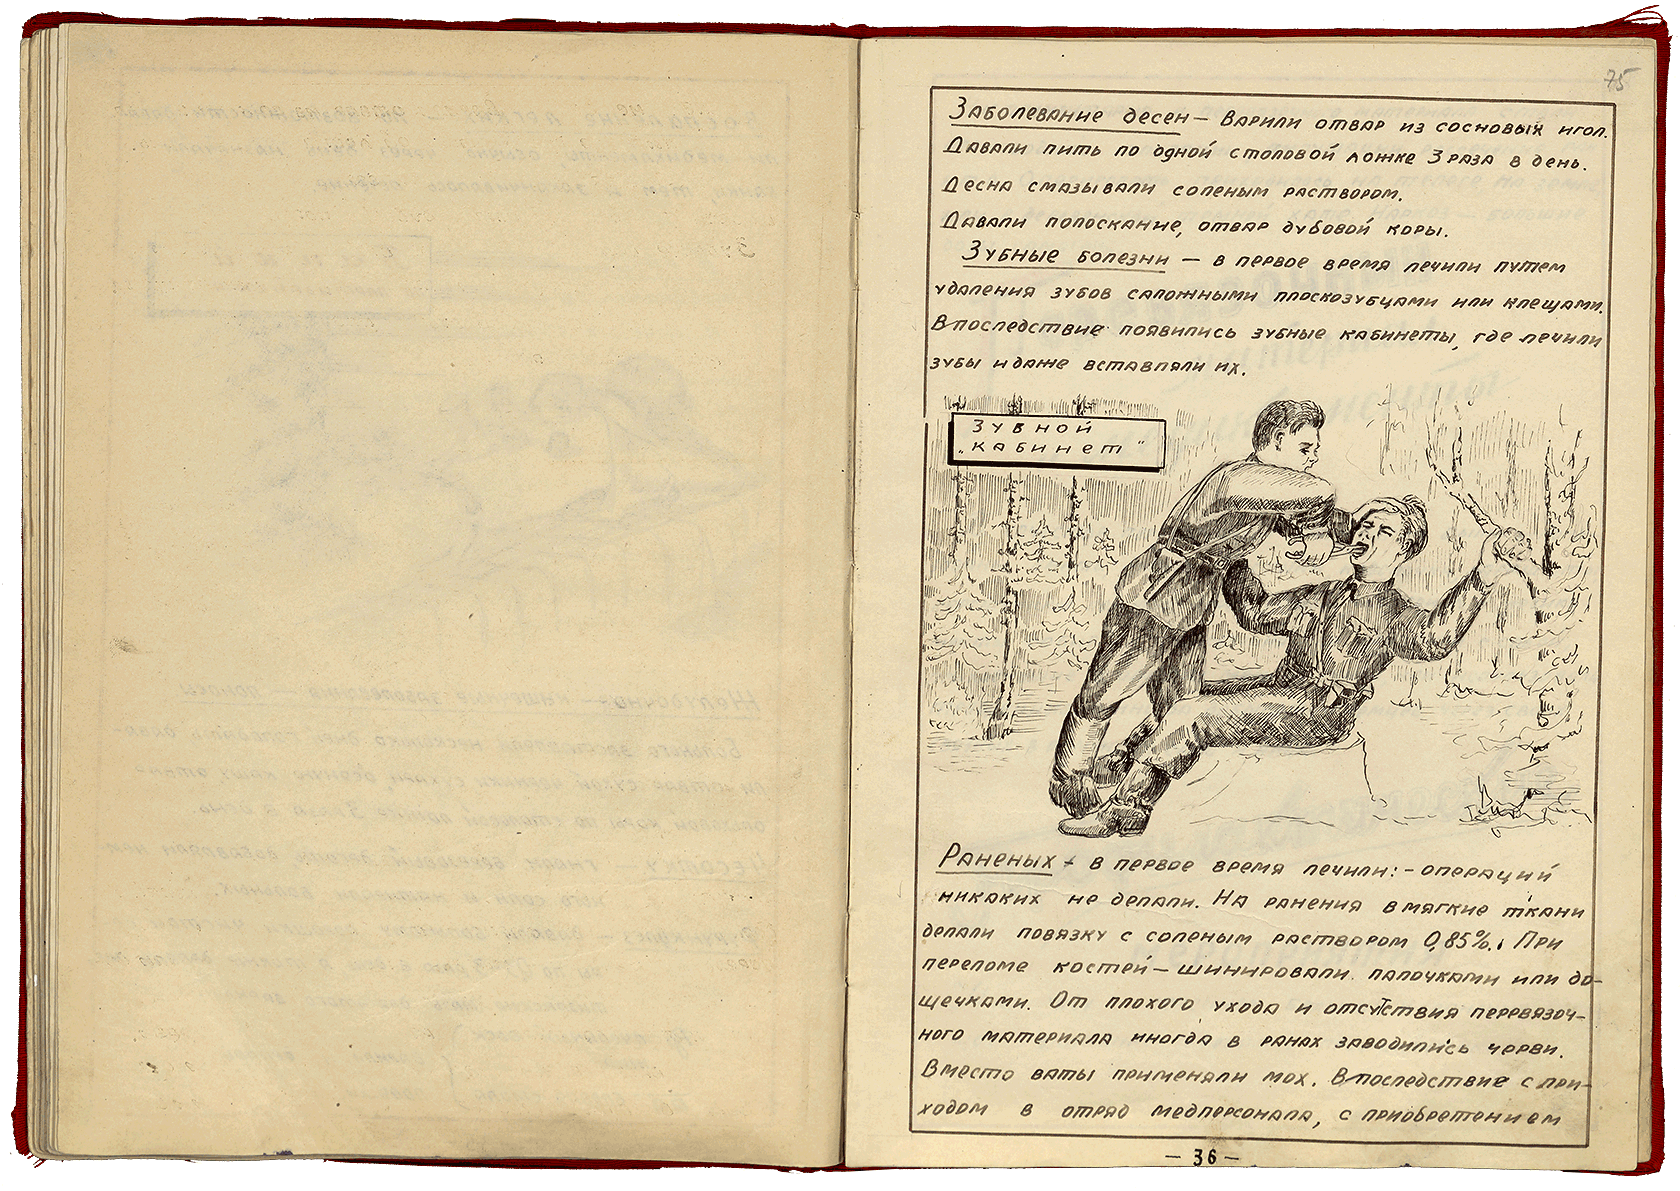 75
Заболевание десен — варили отвар из сосновых игол.
Давали пить по одной столовой ложке 3 раза в день.
Десна смазывали соленым раствором.
Давали полоскание, отвар дубовой коры.
Зубные болезни — в первое время лечили путем
удаления зубов сапожными плоскозубцами или клещами.
Впоследствие появились зубные кабинеты, где лечили
зубы и даже вставляли их.
Зубной
„кабинет"
Раненых — в первое время лечили: – операций
никаких не делали. На ранения в мягкие ткани
делали повязку с соленым раствором 0,85%. При
переломе костей — шинировали палочками или до-
щечками. От плохого ухода и отсутствия перевязоч-
ного материала иногда в ранах заводились черви.
Вместо ваты применяли мох. Впоследствие с при-
ходом в отряд медперсонала, с приобретением
— 36 —